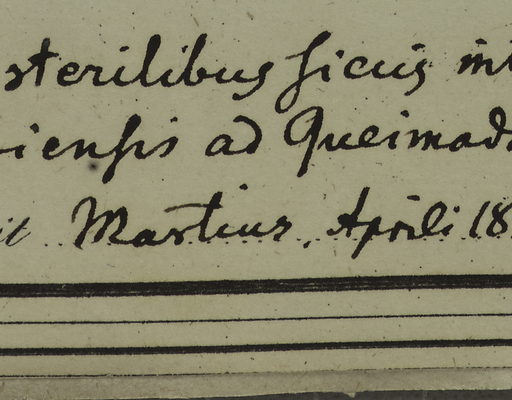 sterilibus siccis int
iensis ad Queimada
it Martius. Aprili 18